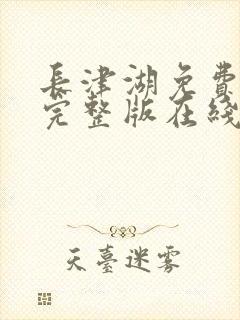 長津湖免費
完整版在綫
天臺迷霧